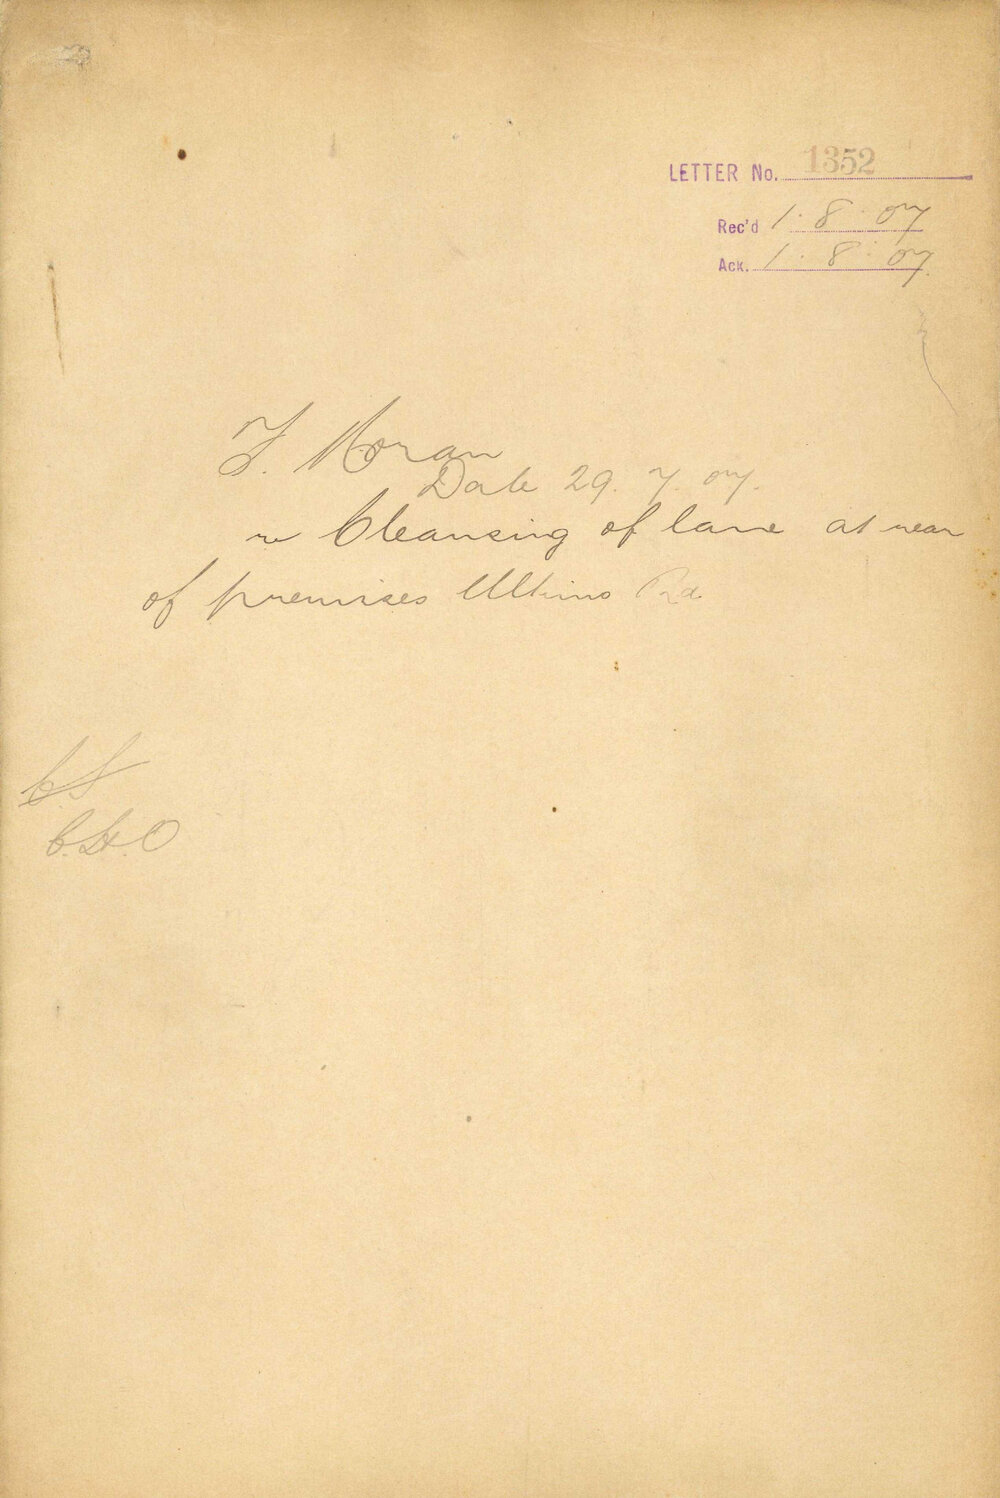 LETTER No. 1352
Rec'd 1. 8. 07
Ack. 1. 8. 07.
F. Moran
Date 29. 7. 07.
re Cleansing of lane at rear
of premises Rd
C.H.O